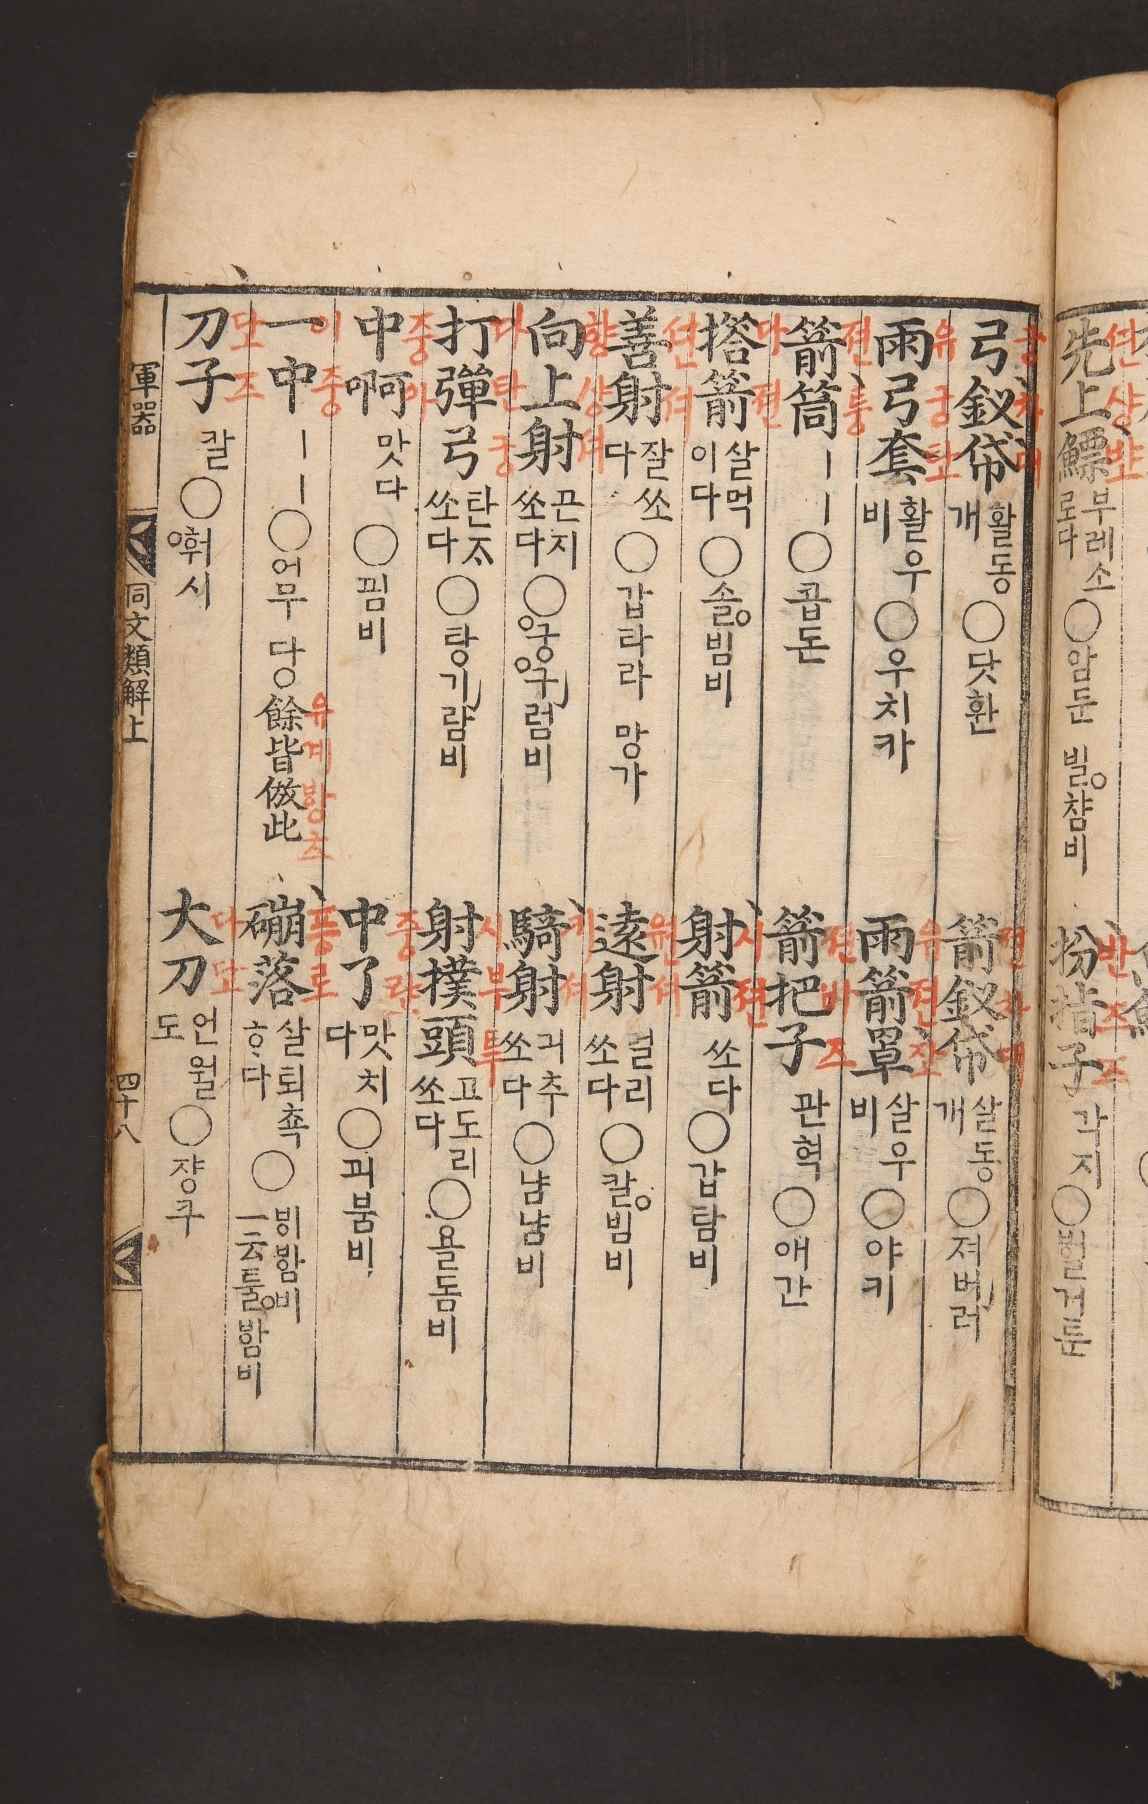 先上鰾 부레소로다 ○암둔 빌참비
扮指子 각지 ○벌거툰
弓釵帒 활동개 ○닷환
箭釵帒 살동개 ○져버러
雨弓套 활우비 ○우치카
雨箭罩 살우비 ○야키
箭筒 丨丨 ○곱돈
箭把子 관혁 ○애간
搭箭 살먹이다 ○솔빔비
射箭 쏘다 ○갑탐비
善射 잘쏘다 ○갑타라 망가
遠射 멀리쏘다 ○칼빔비
向上射 끈지쏘다 ○궁구럼비
騎射 긔추쏘다 ○냠냠비
打彈弓 탄ᄌᆞ쏘다 ○탕기람비
射撲頭 고도리쏘다 ○욜돔비
中啊 맛다 ○낌비
中了 맛치다 ○괴붐비
一中 丨丨 ○어무 당 餘皆倣此
磞落 살퇴쵹ᄒᆞ다 ○빙밤비 一云툴밤비
刀子 칼 ○휘시
大刀 언월도 ○쟝쿠
軍器 同文類解上 四十八